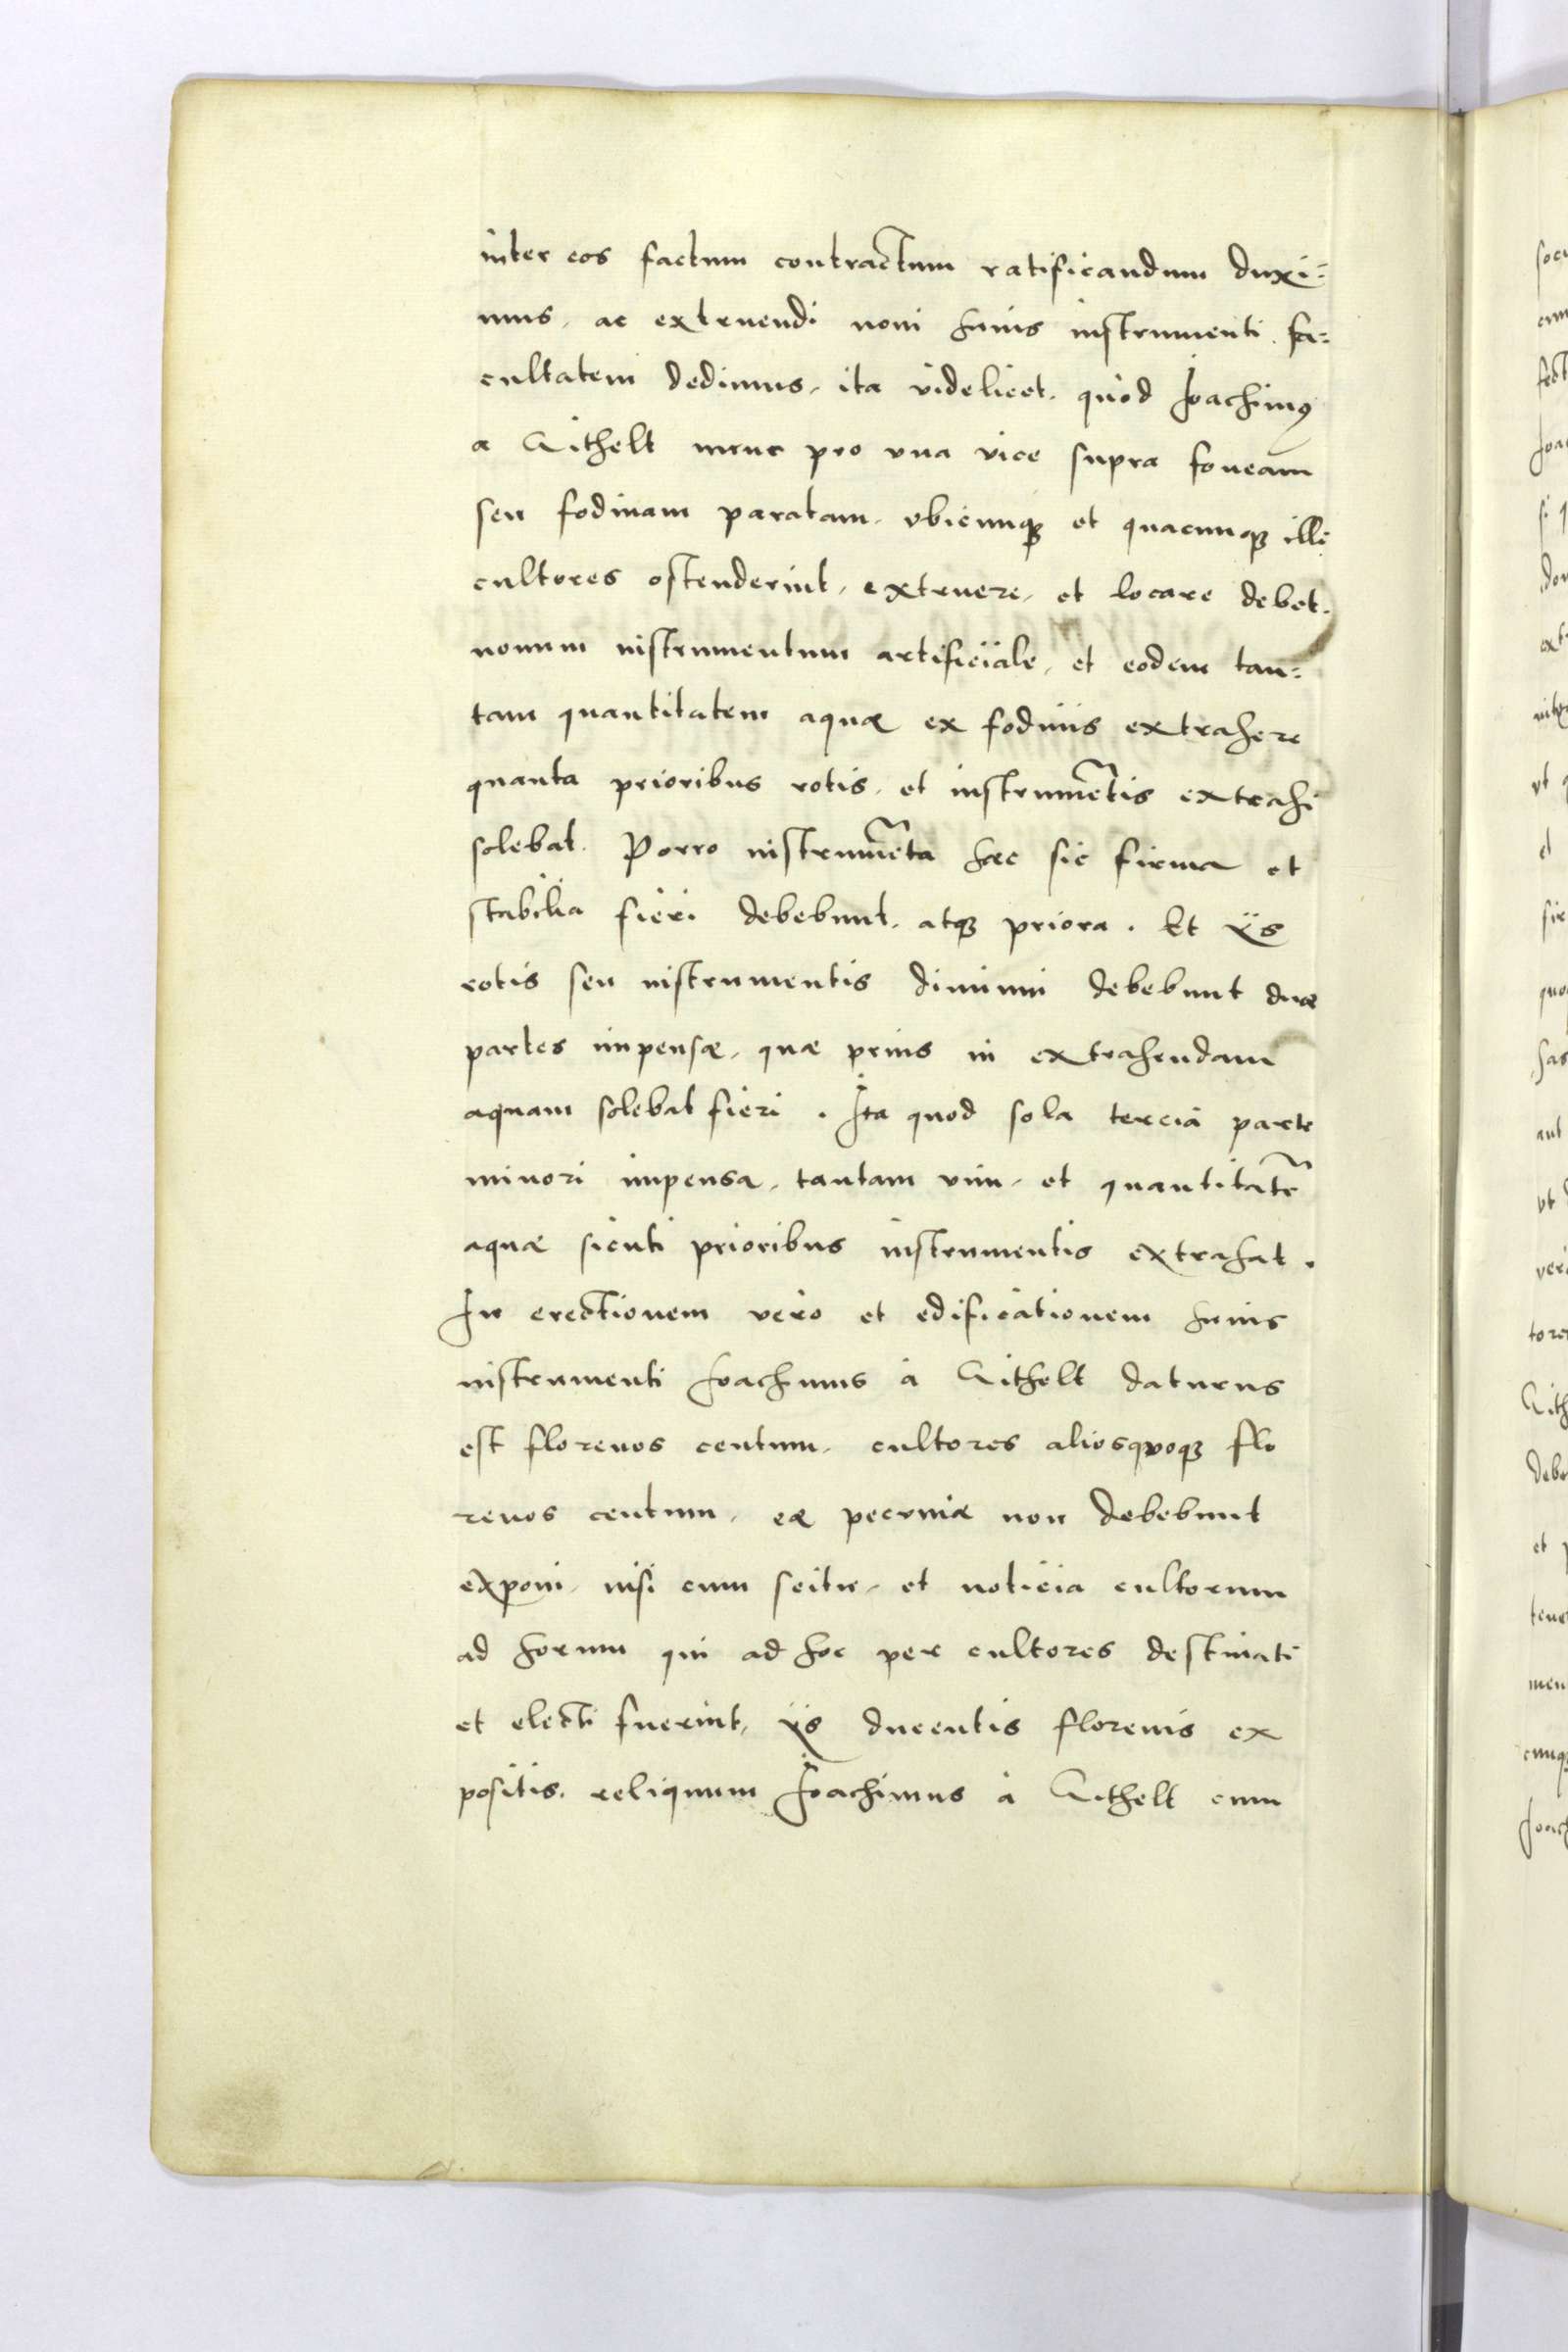 inter eos factum contractum ratificandum duxi=
mus, ac extruendi noui huius instrumenti fa=
cultatem dedimus, ita videlicet, quòd Joachimꝰ
a Githelt nunc pro vna vice supra foueam
seu fodinam paratam, vbicunqꝫ et quacunqꝫ illi
cultores ostenderint, extruere, et locare debet.
nouum instrumentum artificiale, et eodem tan=
tam quantitatem aquæ ex fodinis extrahere
quanta prioribus rotis, et instrumẽtis extrahi
solebat. Porro instrumẽta hæc sic firma et
stabilia fieri debebunt, atqꝫ priora. Et ijs
rotis seu instrumentis diminui debebunt duæ
partes impensæ, quæ prius in extrahendam
aquam solebat fieri. Ita quod sola tercia parte
minori impensa, tantam vim, et quantitatẽ
aquæ sicuti prioribus instrumentis extrahat.
In erectionem vero et edificationem huius
instrumenti Joachimus à Githelt daturus
est florenos centum, cultores alios quoqꝫ flo
renos centum, eæ pecuniæ non debebunt
exponi, nisi cum scitu, et noticia cultorum
ad horum qui ad hoc per cultores destinati
et electi fuerint, ijs ducentis florenis ex
positis, reliquum Joachimus à Githelt cum